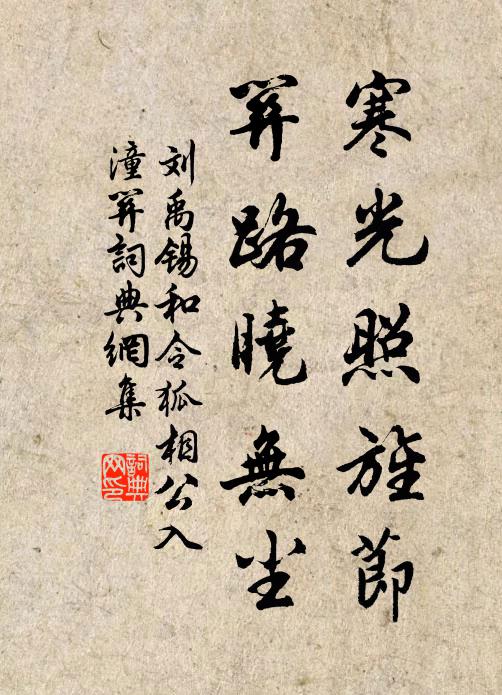 寒光照旌節
關路曉無塵
刘禹锡和令狐相公入
潼關詞典網集
詞典網印